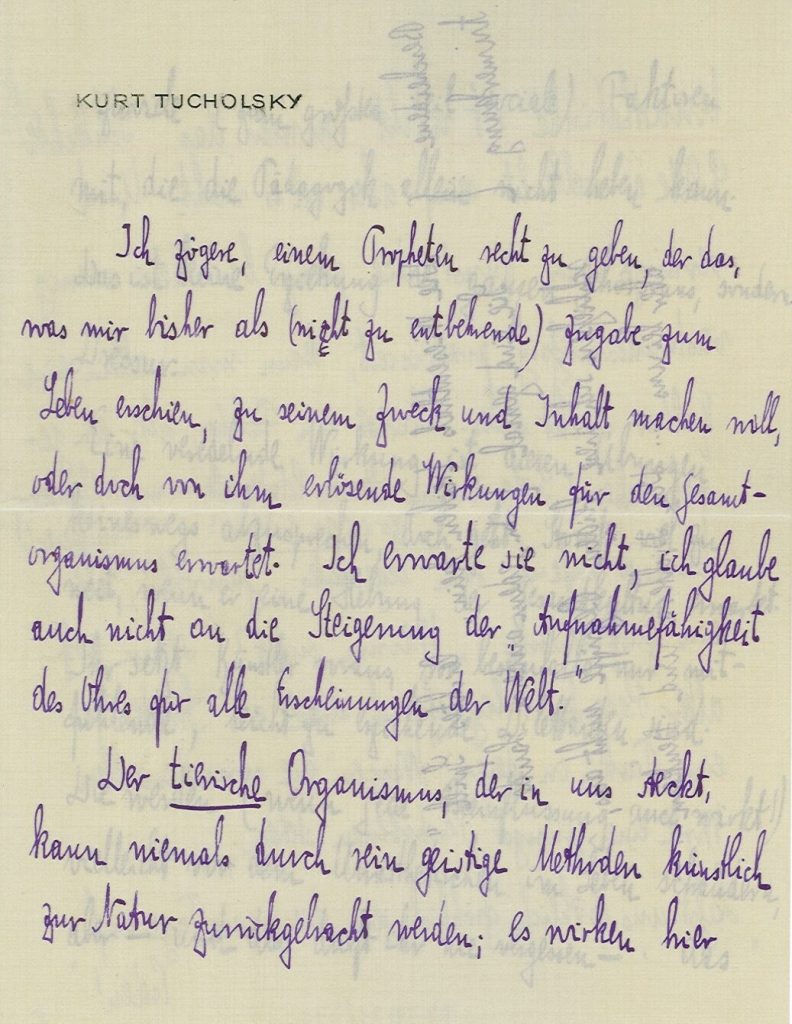 KURT TUCHOLSKY
Ich zögere, einem Propheten recht zu geben, der das,
was mir bisher als (nicht zu entbehrende) Zugabe zum
Leben erschien, zu seinem Zweck und Inhalt machen will,
oder doch von ihm erlösende Wirkungen für den Gesamt-
organismus erwartet. Ich erwarte sie nicht, ich glaube
auch nicht an die Steigerung der „Aufnahmefähigkeit
des Ohres für alle Erscheinungen der Welt."
Der tierische Organismus, der in uns steckt,
kann niemals durch rein geistige Methoden künstlich
zur Natur zurückgebracht werden; es wirken hier